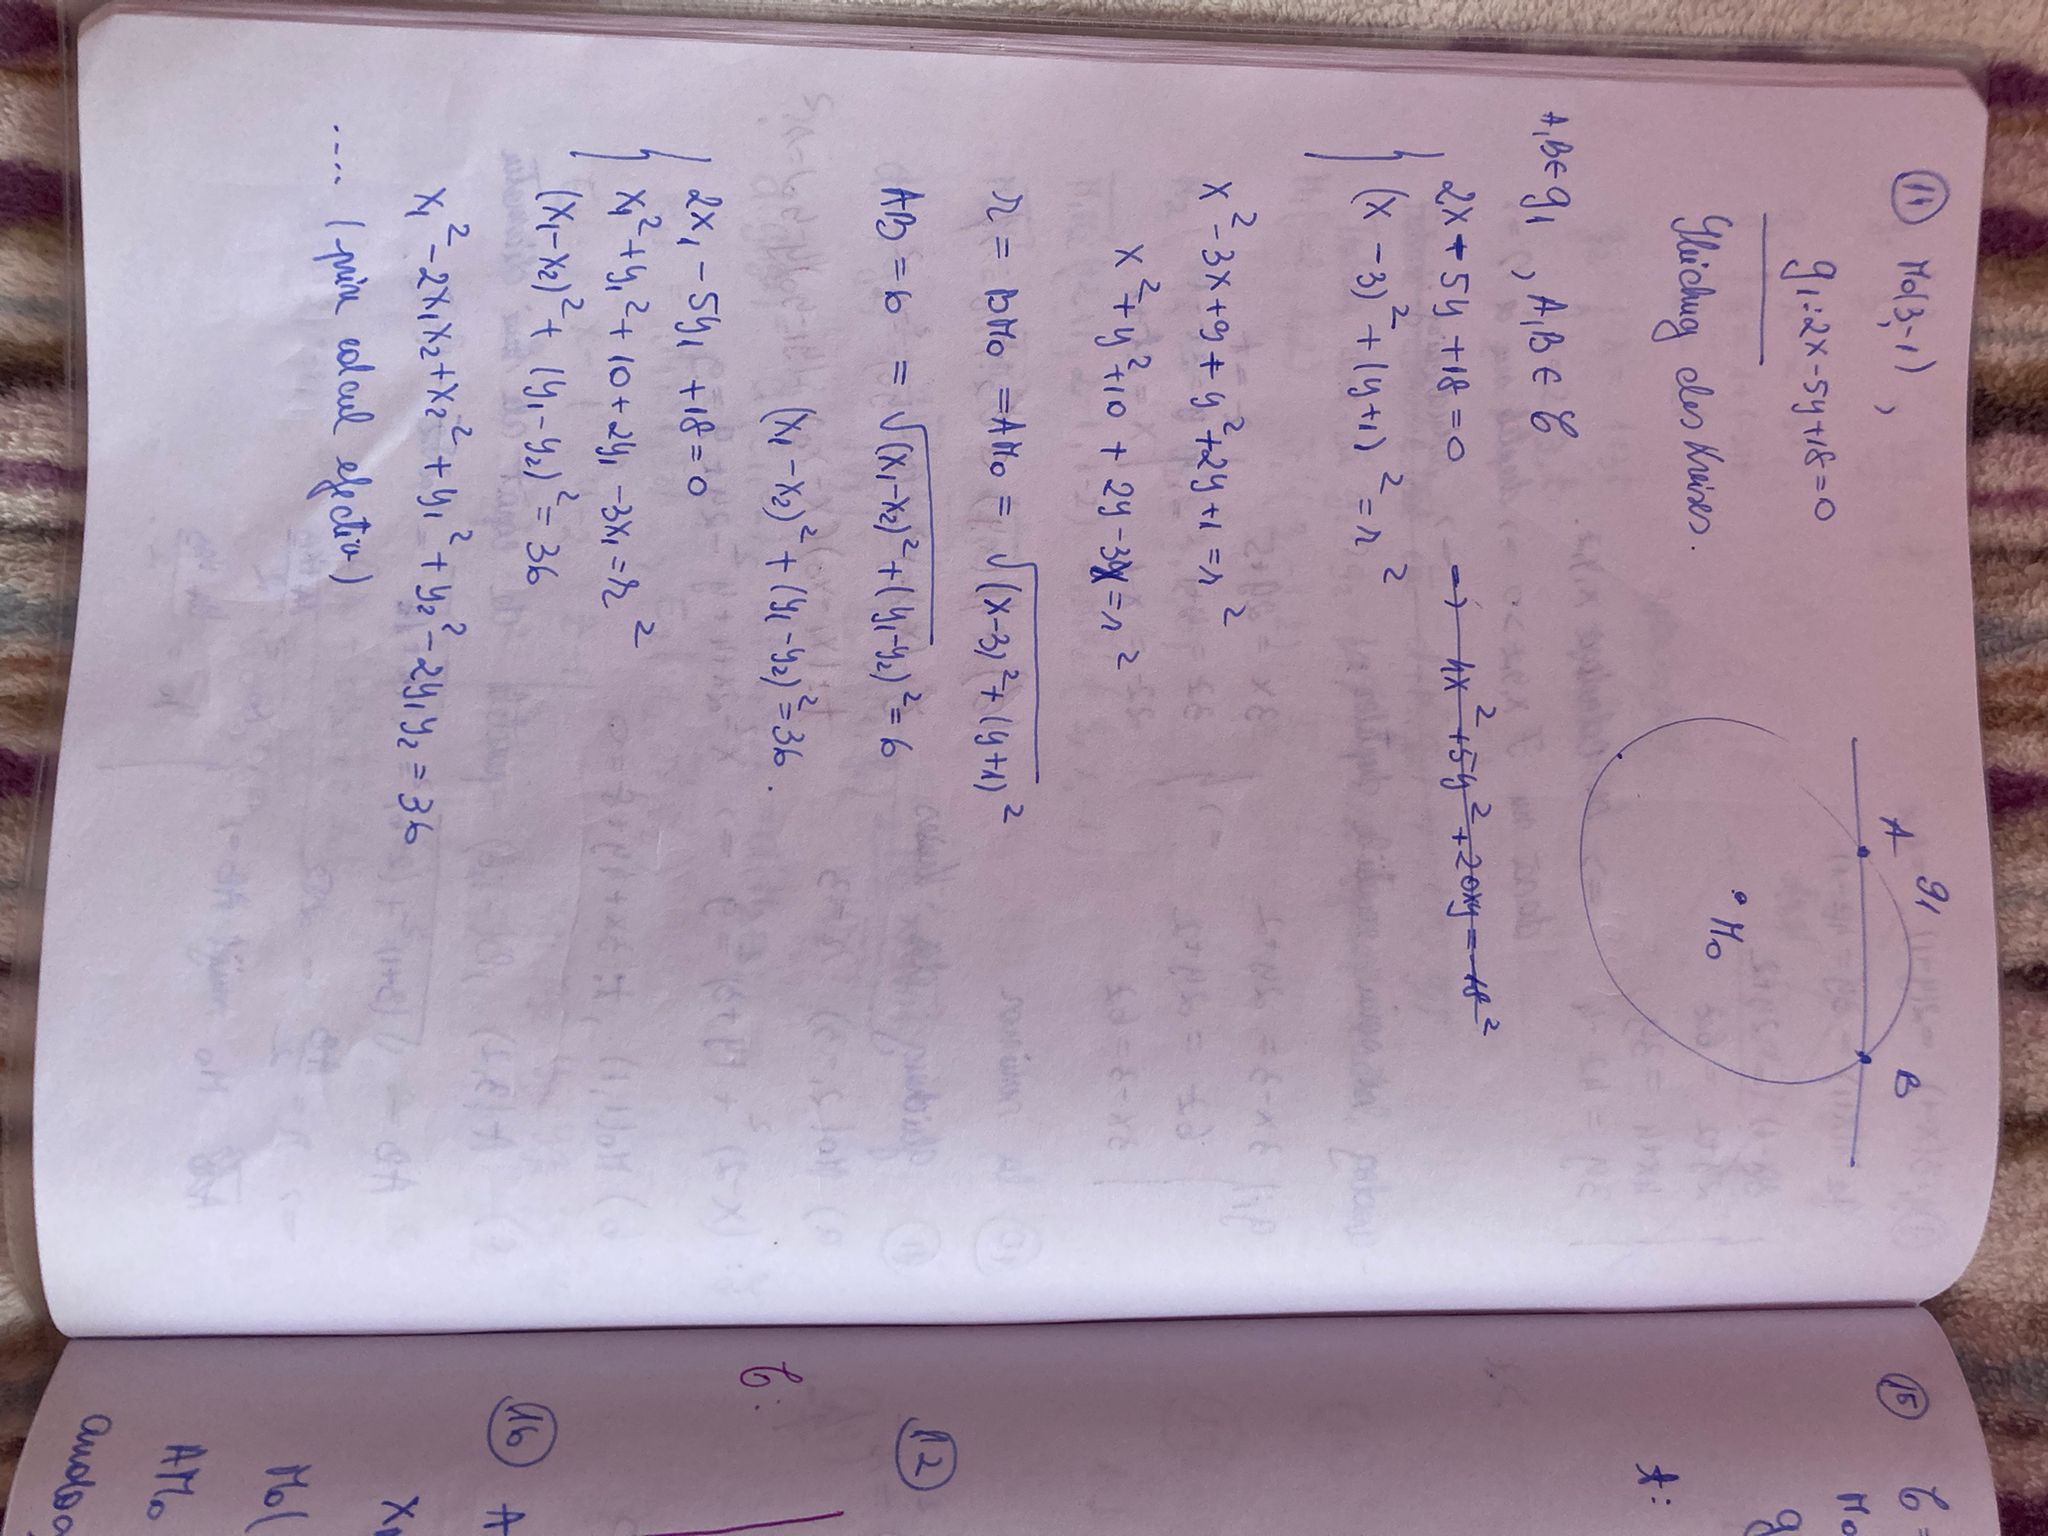 14 M0(3,-1) ,
g1: 2x-5y+18=0
Gleichug des Kreises.
g1
A
B
M0
A,B∈ g1 , A,B ∈ C
2x - 5y +18 = 0 => 4x² + 5y² + 20xy = -18²
(x - 3)² + (y+1)² = r²
x² - 3x + 9 + y² + 2y + 1 = r²
x² + y² + 10 + 2y - 3x = r²
r = BM0 = AM0 = √(x-3)² + (y+1)²
AB = 6 = √(x1-x2)² + (y1-y2)² = 6
(x1 - x2)² + (y1 - y2)² = 36 .
2x1 - 5y1 + 18 = 0
x1² + y1² + 10 + 2y1 - 3x1 = r²
(x1-x2)² + (y1-y2)² = 36
x1² - 2x1x2 + x2² + y1² + y2² - 2y1y2 = 36
.... (prin calcul efectiv)
15
C =
M0
g
t:
12
C:
16 A
M0(
AM0